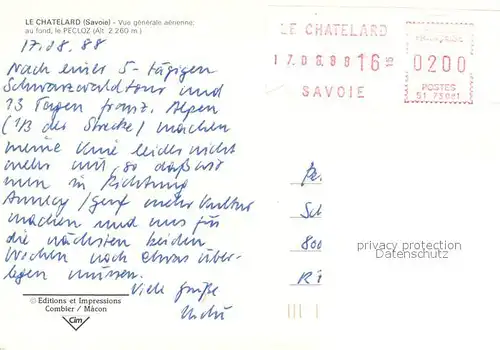 LE CHATELARD (Savoie) - Vue générale aérienne;
au fond, le PECLOZ (Alt. 2.260 m.)
17.08.88
Nach einer 5-tägigen
Schwarzwaldtour und
13 Tagen franz. Alpen
(1/3 der Strecke) machen
meine Knie leider nicht
mehr mit, so daß wir
nun in Richtung
Annecy/Genf mehr Kultur
machen und uns für
die nächsten beiden
Wochen noch etwas über-
legen müssen.
Viele Grüße
© Editions et Impressions
Combier / Mâcon
Cim
LE CHATELARD
17.08.88 16 15
SAVOIE
0200
POSTES
Sch
800
privacy protection
Datenschutz